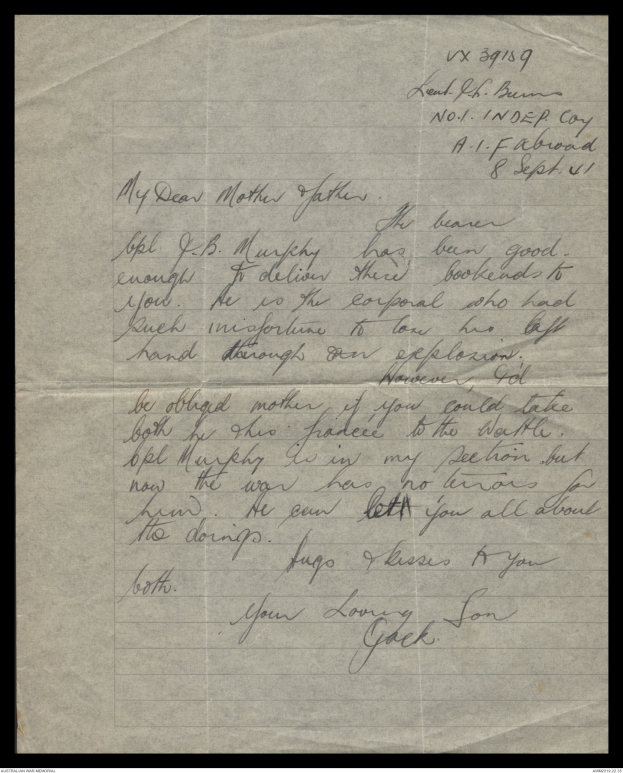 VX 39189
Lieut. J.L. Burns
NO.1. INDEP. Coy
A.I.F Abroad
8 Sept. 41
My Dear Mother & father.
The bearer
Cpl J.B. Murphy has been good
enough to deliver these bookends to
you. He is the corporal who had
such misfortune to lose his left
hand through an explosion.
However, I'd
be obliged mother if you could take
both he & his fiancee to the Wattle.
Cpl Murphy is in my section but
now the war has no terrors for
him. He can tell you all about
the doings.
Hugs & kisses to you
both.
Your Loving Son
Jack.
AUSTRALIAN WAR MEMORIAL
AWM2019.22.35